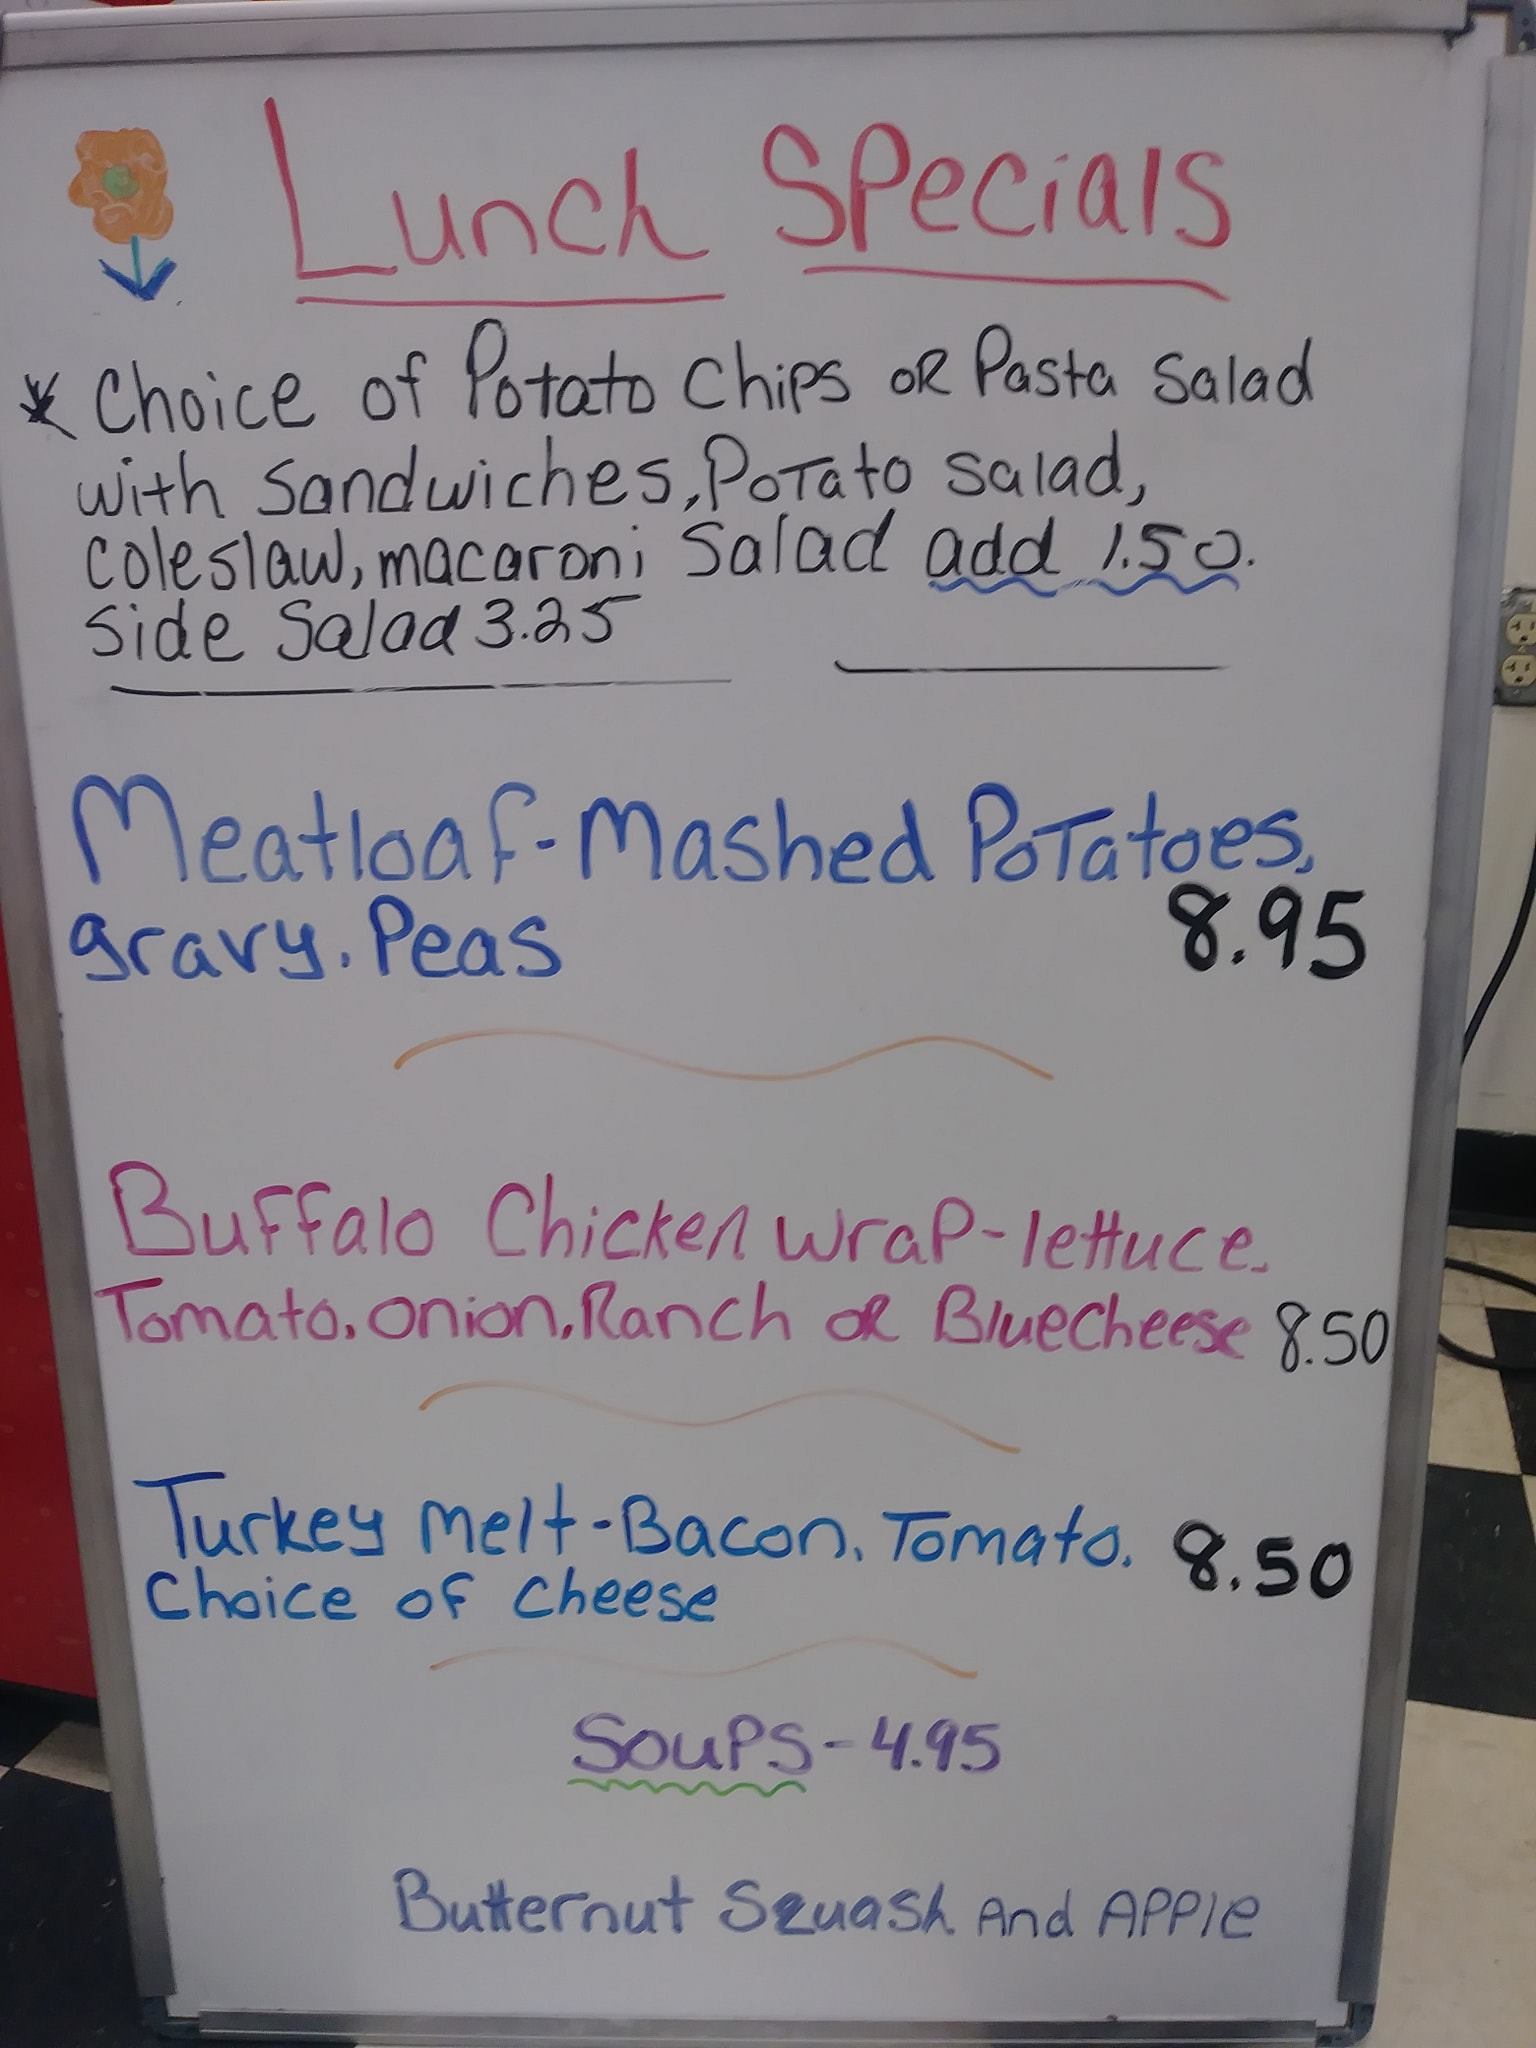 Lunch Specials
* Choice of Potato Chips OR Pasta Salad
with Sandwiches, Potato Salad,
coleslaw, macaroni Salad add 1.50.
side Salad 3.25
Meatloaf - Mashed Potatoes,
gravy. Peas 8.95
Buffalo Chicken wrap - lettuce.
Tomato. onion, Ranch or BlueCheese 8.50
Turkey Melt - Bacon. Tomato. 8.50
Choice of Cheese
Soups - 4.95
Butternut Squash And Apple